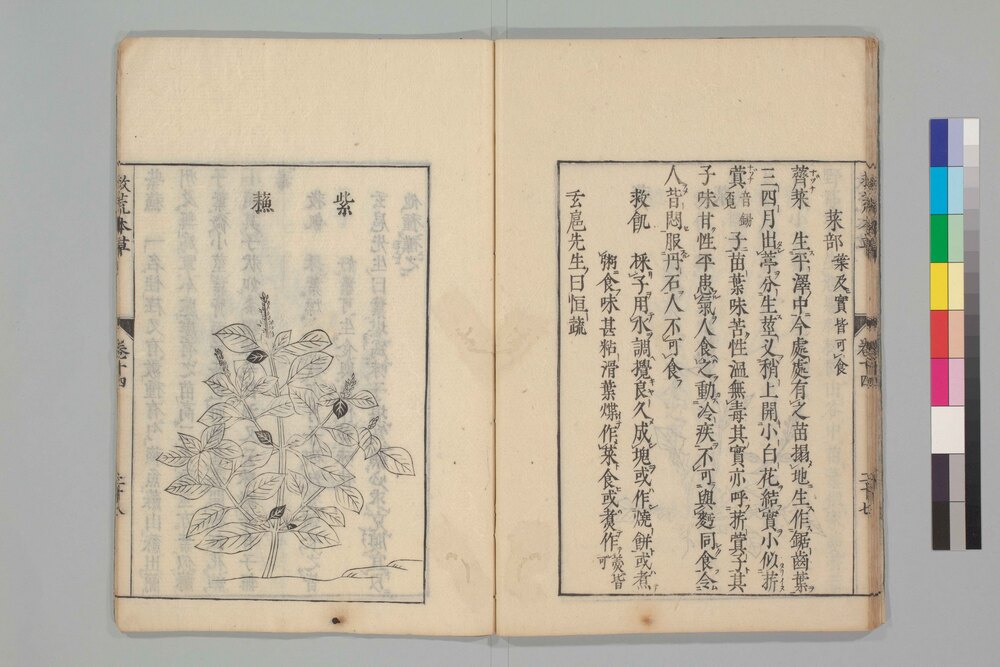 菜部 葉及實皆可食
薺菜 生平澤中今處處有之苗搨地生作鋸齒葉
三四月出葶分生莖乂稍上開小白花結實小似菥
蓂 子苗葉味苦性溫無毒其實亦呼菥蓂子其
子味甘性平患氣人食之動冷疾不可與麪同食令
人昔悶服丹石人不可食
救飢 採子用水調攪良久成塊或作燒餅或煮
粥食味甚粘滑葉煠作菜食或煑作羮皆可
玄扈先生曰恒蔬
紫
蘓
救荒本草
卷十四